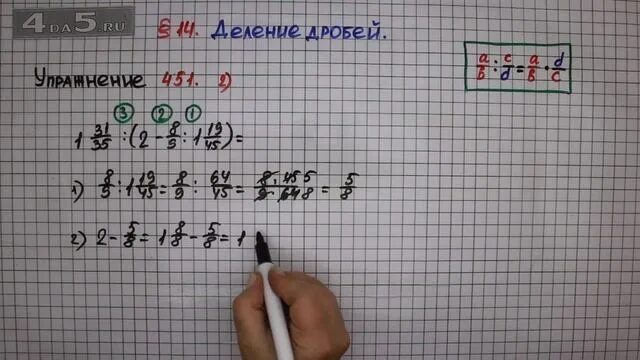 4DA5.RU
§ 14. Деление дробей.
a/b : c/d = a/b · d/c
Упражнение 451. 2)
3 2 1
1 31/35 : (2 - 8/9 : 1 19/45) =
1) 8/9 : 1 19/45 = 8/9 : 64/45 = 8 · 45 5 / 9 · 64 8 = 5/8
2) 2 - 5/8 = 1 8/8 - 5/8 = 1